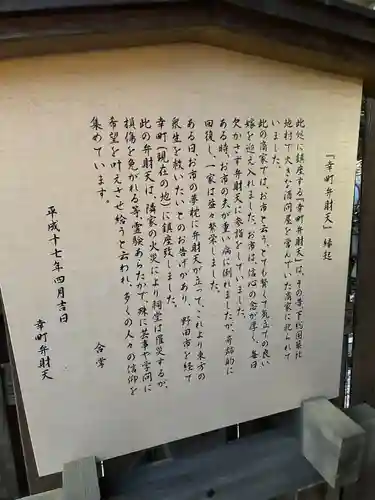 『幸町弁財天』縁起
此処に鎮座する『幸町弁財天』は、その昔下総国葛飾
地村で大きな酒問屋を営んでいた商家に祀られて
いました。
此の商家では、お市と云う、とても賢くて気立ての良い
嫁を迎え入れました。お市は、信心の念が厚く、毎日
欠かさず弁財天へ参詣をしていました。
ある時、お市の夫が重い病に倒れましたが、奇跡的に
回復し、一家は益々繁栄しました。
ある日、お市の夢枕に弁財天が立って、これより東方の
衆生を救いたいとのお告げがあり、野田市を経て
幸町(現在の地)に鎮座致しました。
此の弁財天は、隣家の火災により祠堂は罹災するが、
損傷を免がれる等、霊験あらたかで、殊に芸事や学問に
希望を叶えさせ給うと云われ、多くの人々の信仰を
集めています。
合掌
平成十七年四月吉日
幸町弁財天